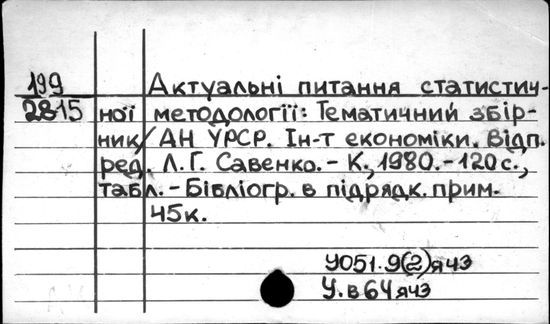 199 Актуальні питання статистич-
2815 ної методології: Тематичний збір-
ник/АН УРСР. Ін-т економіки. Відп.
ред. Л.Г. Савенко. - К., 1980. - 120 с.,
табл. - Бібліогр. в підрядк. прим.
45к.
У051.9(2)я43
У.в64я43